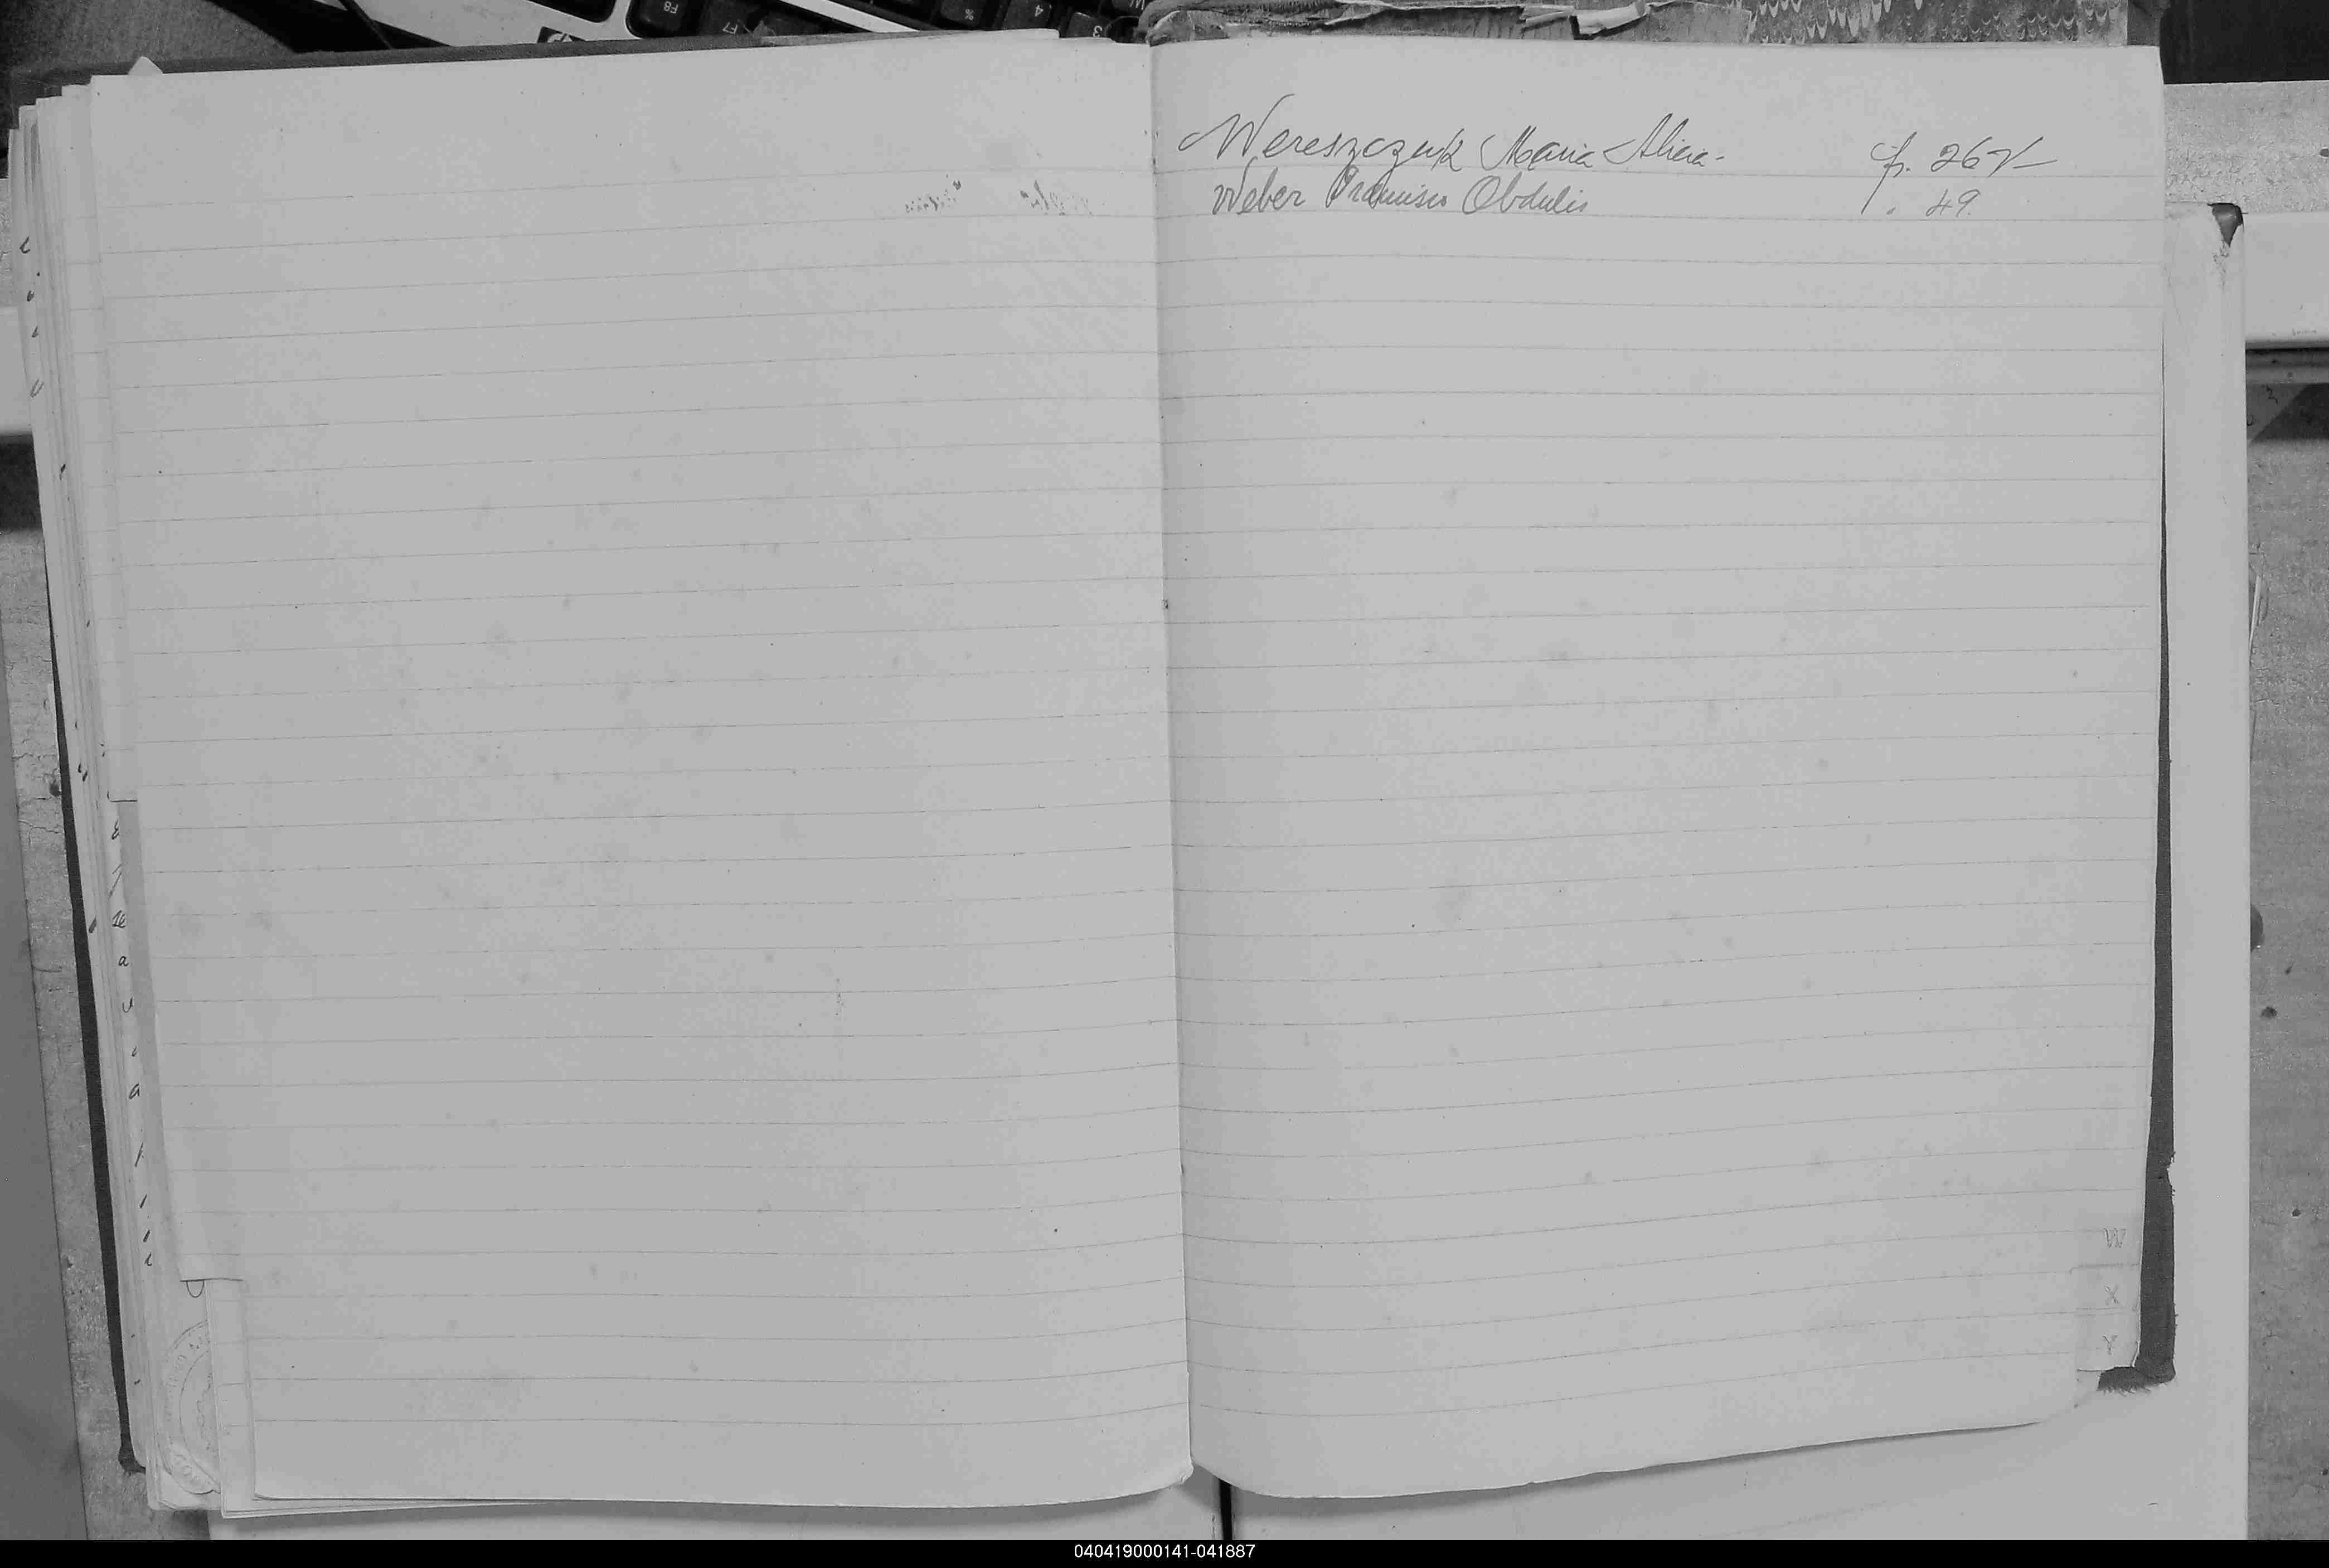 Wereszczuk Maria Alicia- f. 26 V
Weber Francisco Obdulio " 49
W
X
Y
040419000141-041887